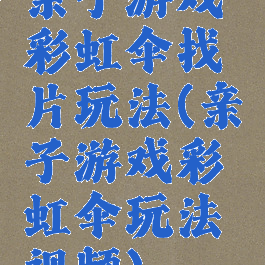 亲子游戏
彩虹伞找
片玩法(亲
子游戏彩
虹伞玩法
视频)